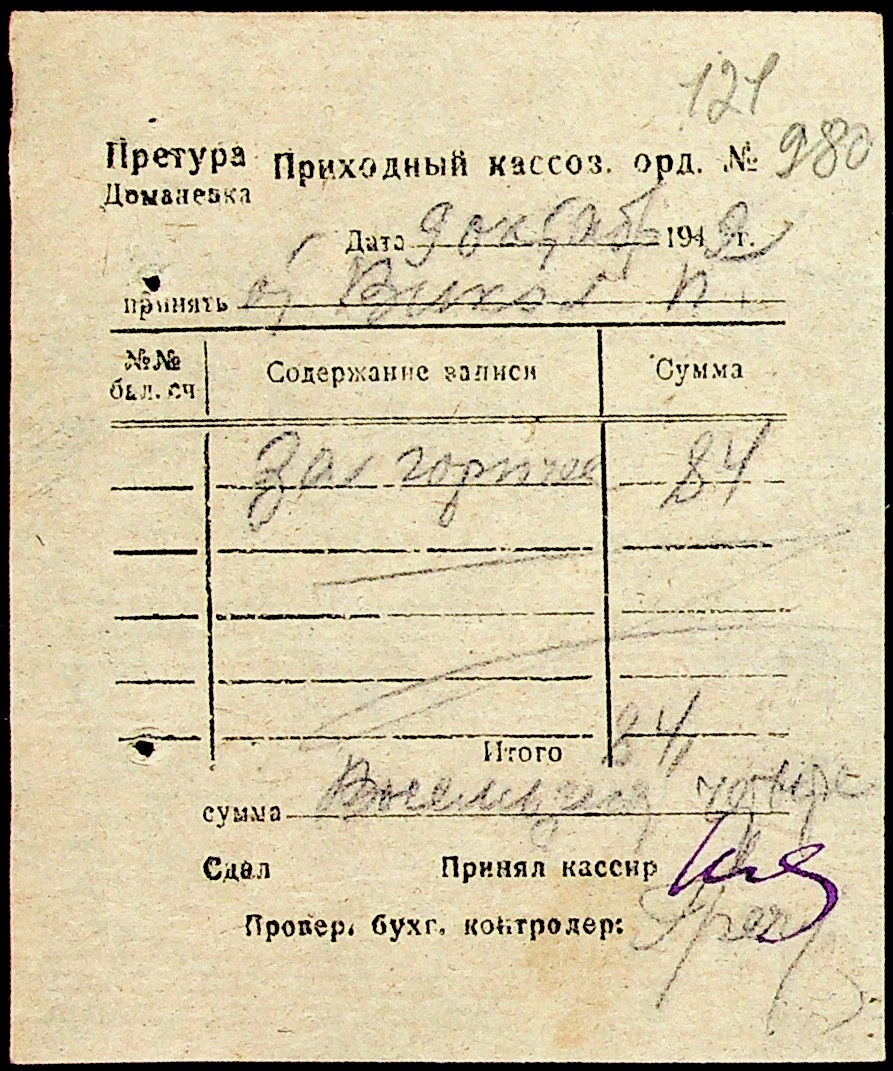 121
Претура Приходный кассоз. орд. № 980
Доманевка
Дата 9 октября 1942 г.
принять от П.
№№ бал. сч Содержание записи Сумма
За 84
Итого 84
сумма Восемьдесят четыре
Сдал Принял кассир
Провер. бухг. контролер: